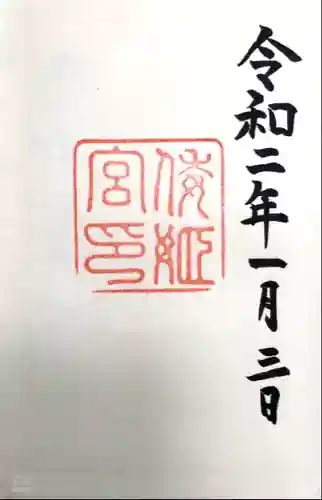 令和二年一月三日
倭姫
宮印